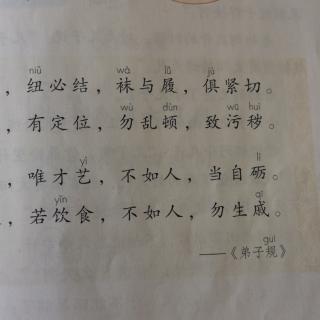 niǔ wà lǚ jù
，纽必结，袜与履，俱紧切。
wù dùn wū huì
，有定位，勿乱顿，致污秽。
yì lì
，唯才艺，不如人，当自砺。
yǐn qī
，若饮食，不如人，勿生戚。
guī
——《弟子规》